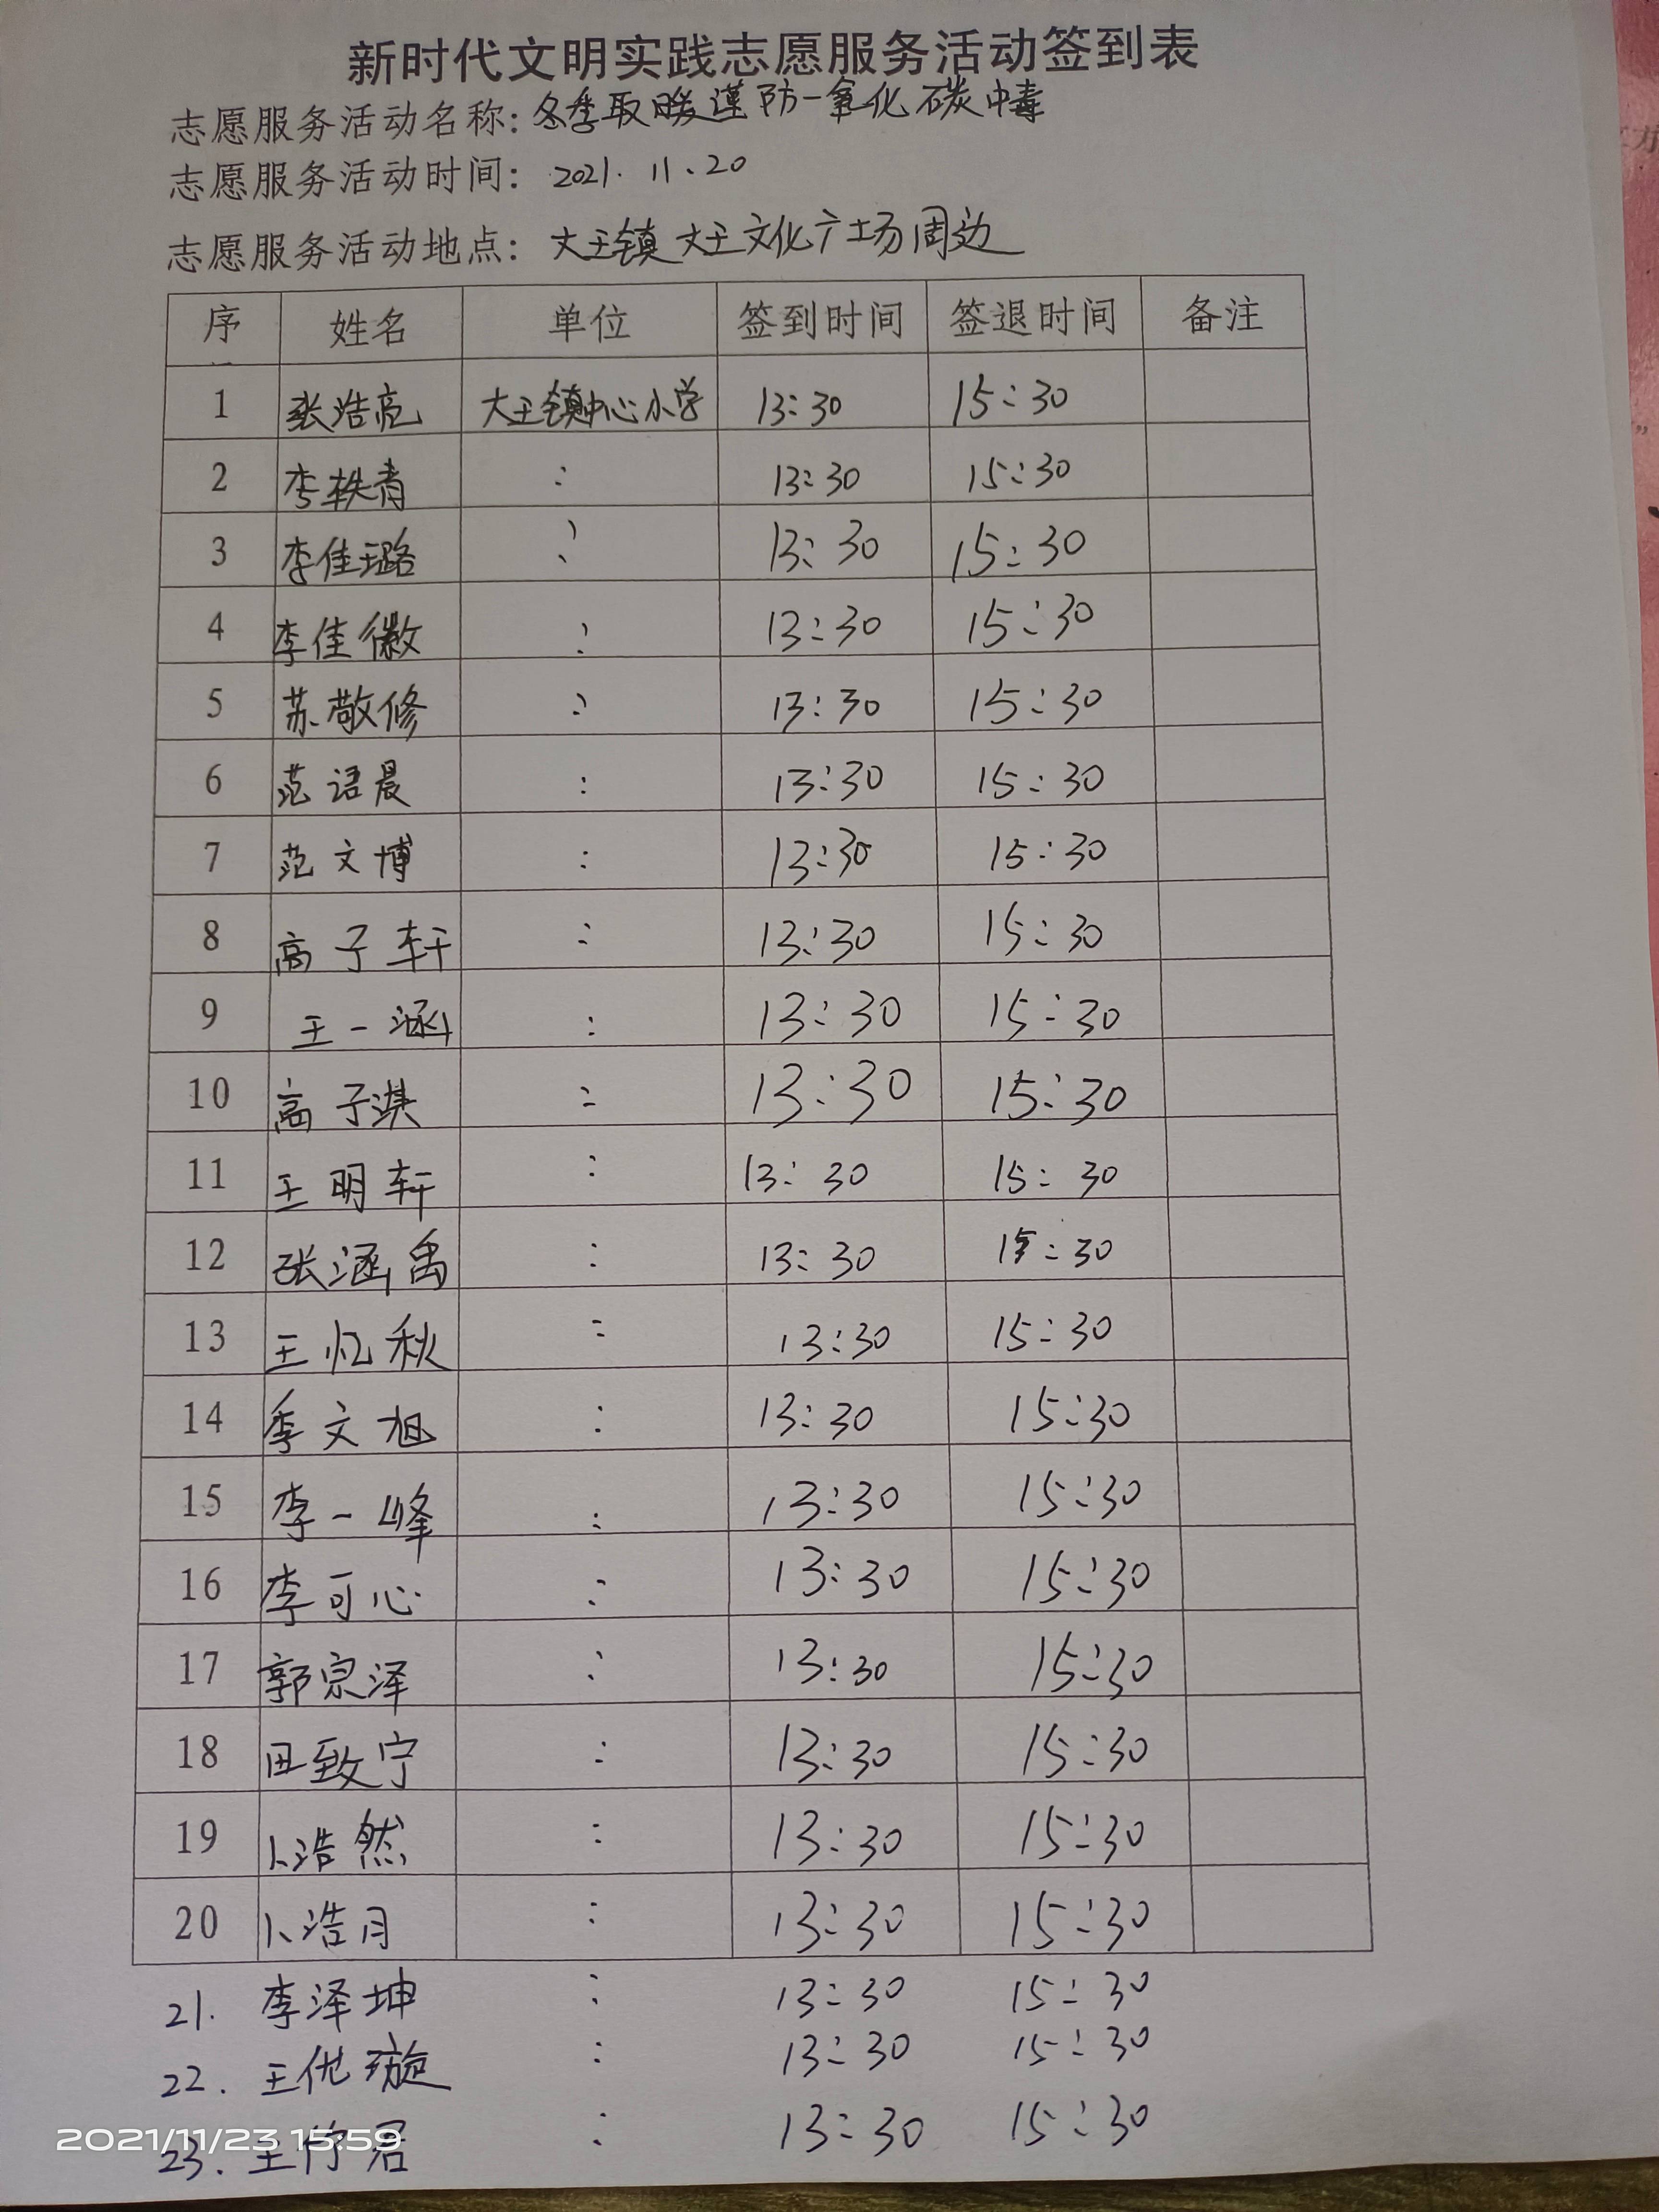 新时代文明实践志愿服务活动签到表
志愿服务活动名称：冬季取暖谨防一氧化碳中毒
志愿服务活动时间： 2021. 11. 20
志愿服务活动地点： 大王镇大王文化广场周边
序 姓名 单位 签到时间 签退时间 备注
1 张浩亮 大王镇中心小学 13:30 15:30
2 李轶青 : 13:30 15:30
3 李佳璐 : 13:30 15:30
4 李佳徽 : 13:30 15:30
5 苏敬修 : 13:30 15:30
6 范语晨 : 13:30 15:30
7 范文博 : 13:30 15:30
8 高子轩 : 13:30 15:30
9 王一涵 : 13:30 15:30
10 高子淇 : 13:30 15:30
11 王明轩 : 13:30 15:30
12 张涵禹 : 13:30 15:30
13 王忆秋 : 13:30 15:30
14 季文旭 : 13:30 15:30
15 李一峰 : 13:30 15:30
16 李可心 : 13:30 15:30
17 郭宗泽 : 13:30 15:30
18 田致宁 : 13:30 15:30
19 卜浩然 : 13:30 15:30
20 卜浩月 : 13:30 15:30
21. 李泽坤 : 13:30 15:30
22. 王优璇 : 13:30 15:30
23. 王 君 : 13:30 15:30
2021/11/23 15:59